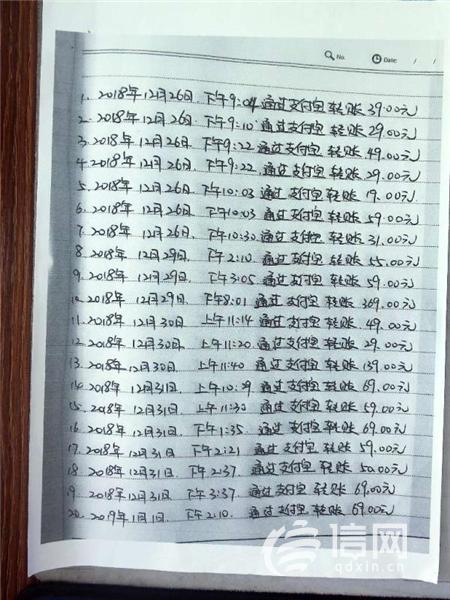 No. Date: / /
1. 2018年12月26日. 下午9:04 通过支付宝 转账 39.00元
2. 2018年 12月26日. 下午9:10 通过支付宝 转账 29.00元
3. 2018年 12月26日. 下午9:22 通过支付宝 转账 49.00元
4. 2018年 12月26日. 下午9:22 通过支付宝 转账 29.00元
5. 2018年 12月26日 下午10:03 通过支付宝 转账 19.00元
6. 2018年 12月26日 下午10:03 通过支付宝 转账 59.00元
7. 2018年 12月26日 下午10:30 通过支付宝 转账 31.00元
8. 2018年 12月29日 下午2:10 通过支付宝 转账 55.00元
9. 2018年 12月29日. 下午3:05 通过支付宝 转账 59.00元
10. 2018年 12月29日. 下午8:01 通过支付宝 转账 369.00元
11. 2018年 12月30日 上午11:14 通过支付宝 转账 49.00元
12. 2018年 12月30日. 上午11:20 通过支付宝 转账 29.00元
13. 2018年 12月30日. 上午11:40 通过支付宝 转账 139.00元
14. 2018年 12月31日 上午10:29 通过支付宝 转账 69.00元
15. 2018年 12月31日. 上午11:30 通过支付宝 转账 59.00元
16. 2018年 12月31日. 下午1:35 通过支付宝 转账 69.00元
17. 2018年 12月31日. 下午2:21 通过支付宝 转账 59.00元
18. 2018年 12月31日. 下午2:37. 通过支付宝 转账 50.00元
19. 2018年 12月31日 下午3:37. 通过支付宝 转账 69.00元
20. 2019年 1月1日. 下午2:10. 通过支付宝 转账 69.00元
信网
qdxin.cn